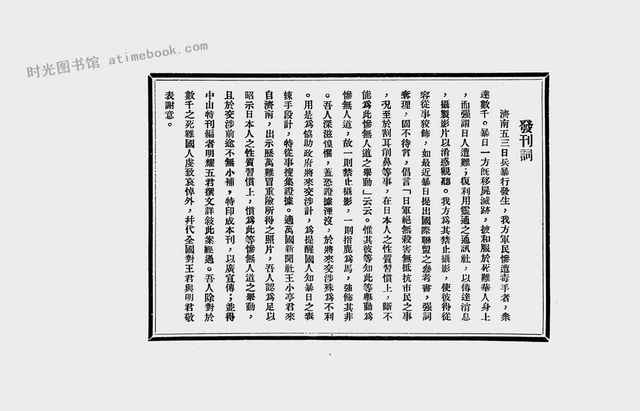 时光图书馆 atimebook.com
發刊詞
濟南五三日兵暴行發生，我方軍民慘遭毒手者，衆
達數千。暴日一方既移屍滅跡，披和服於死難華人身上
，而强謂日人遭難；復利用靈通之通訊社，以傳達消息
，攝製影片以淆惑觀聽。我方爲其禁止攝影，使彼得從
容從事狡飾，如最近暴日提出國際聯盟之參考書，强詞
奪理，固不待言，倡言「日軍絕無殺害無抵抗市民之事
，况至於割耳削鼻等事，在日本人之性質習慣上，斷不
能爲此慘無人道之舉動」云云。惟其彼等知此等舉動爲
慘無人道，故一則禁止攝影，一則指鹿爲馬，强飾其非
。吾人深滋惶懼，蓋恐證據湮沒，於將來交涉殊爲不利
。用是爲協助政府將來交涉計，爲提醒國人知暴日之毒
辣手段計，特從事搜集證據。適萬國新聞社王小亭君來
自濟南，出示歷萬難冒重險所得之照片，吾人認爲足以
昭示日本人之性質習慣上，慣爲此等慘無人道之舉動，
且於交涉前途不無小補，特印成本刊，以廣宣傳；並得
中山特刊編者明耀五君撰文詳叙此案經過。吾人除對於
數千之死難國人虔致哀悼外，幷代全國對王君與明君敬
表謝意。